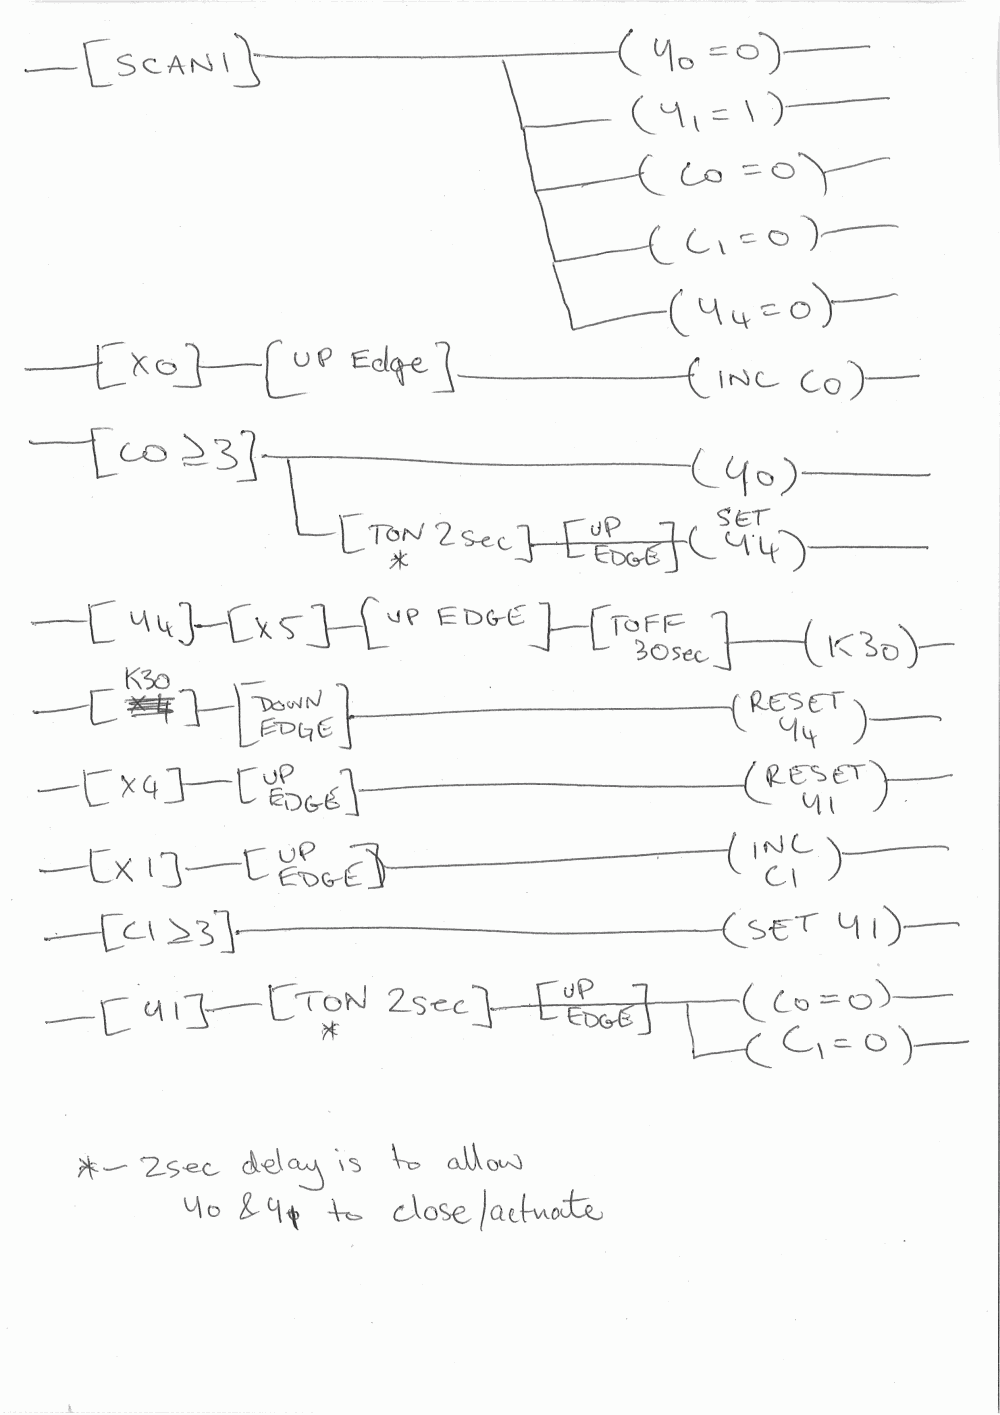 [SCAN1] (Y0=0)
(Y1=1)
(C0=0)
(C1=0)
(Y4=0)
[X0] [UP Edge] (INC C0)
[C0≥3] (Y0)
[TON 2sec] [UP EDGE] (SET Y4)
*
[Y4] [X5] [UP EDGE] [TOFF 30sec] (K30)
[K30] [DOWN EDGE] (RESET Y4)
[X4] [UP EDGE] (RESET Y1)
[X1] [UP EDGE] (INC C1)
[C1≥3] (SET Y1)
[Y1] [TON 2sec] [UP EDGE] (C0=0)
*
(C1=0)
*- 2sec delay is to allow
Y0 & Y1 to close/actuate